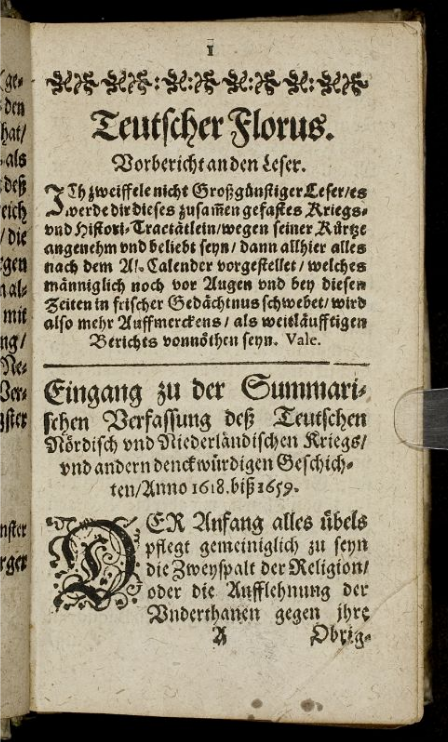 ge-
den
hat/
als
deß
/ die
mit
ng/
Ne-
Ver-
1
Teutscher Florus.
Vorbericht an den Leser.
ICh zweiffele nicht Großgünstiger Leser/es
werde dir dieses zusam̃en gefastes Kriegs-
vnd Histori-Tractätlein/wegen seiner Kürtze
angenehm vnd beliebt seyn/ dann allhier alles
nach dem Al. Calender vorgestellet/ welches
männiglich noch vor Augen vnd bey diesen
Zeiten in frischer Gedächtnus schwebet/ wird
also mehr Auffmerckens/ als weitläufftigen
Berichts vonnöthen seyn. Vale.
Eingang zu der Summari-
schen Verfassung deß Teutschen
Nördisch vnd Niederländischen Kriegs/
vnd andern denckwürdigen Geschich-
ten/Anno 1618. biß 1659.
DER Anfang alles übels
pflegt gemeiniglich zu seyn
die Zweyspalt der Religion/
oder die Aufflehnung der
Vnderthanen gegen ihre
A Obrig-